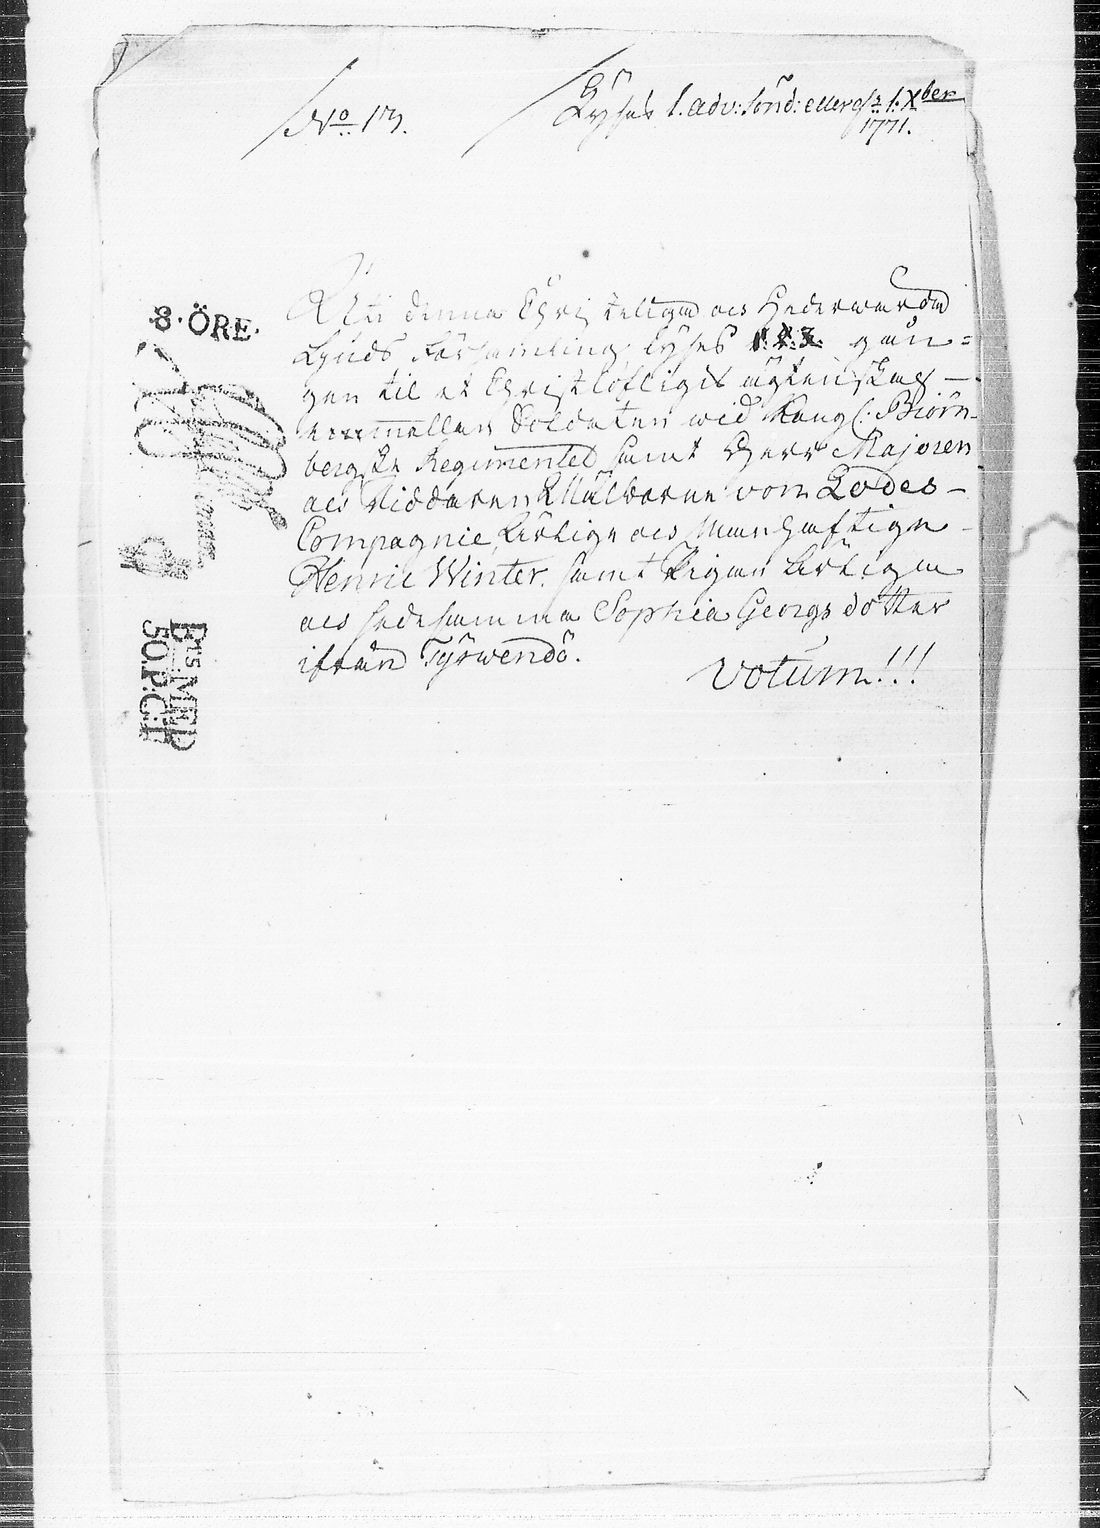 No 13.
Lyses 1. adv: sönd: eller d. 1. Xber
1771.
8·ÖRE·
Uti denna Christeliga och Hedervärda
Guds Församling, lyses 1. 2. 3. gån=
gen til et Christlofligit ägtenskap
emellan Soldaten wid Kongl: Biörne-
borgska Regimentet samt Herr Majoren
och Riddaren von Qvodes-
Compagnie, Ärlige och Manhaftige
Henric Winter, samt Pigan ärliga
och hedesamma Sophia Georgs dotter
ifrån Tyrwendö.
Votum!!!
BTS MED
50.P:C:T